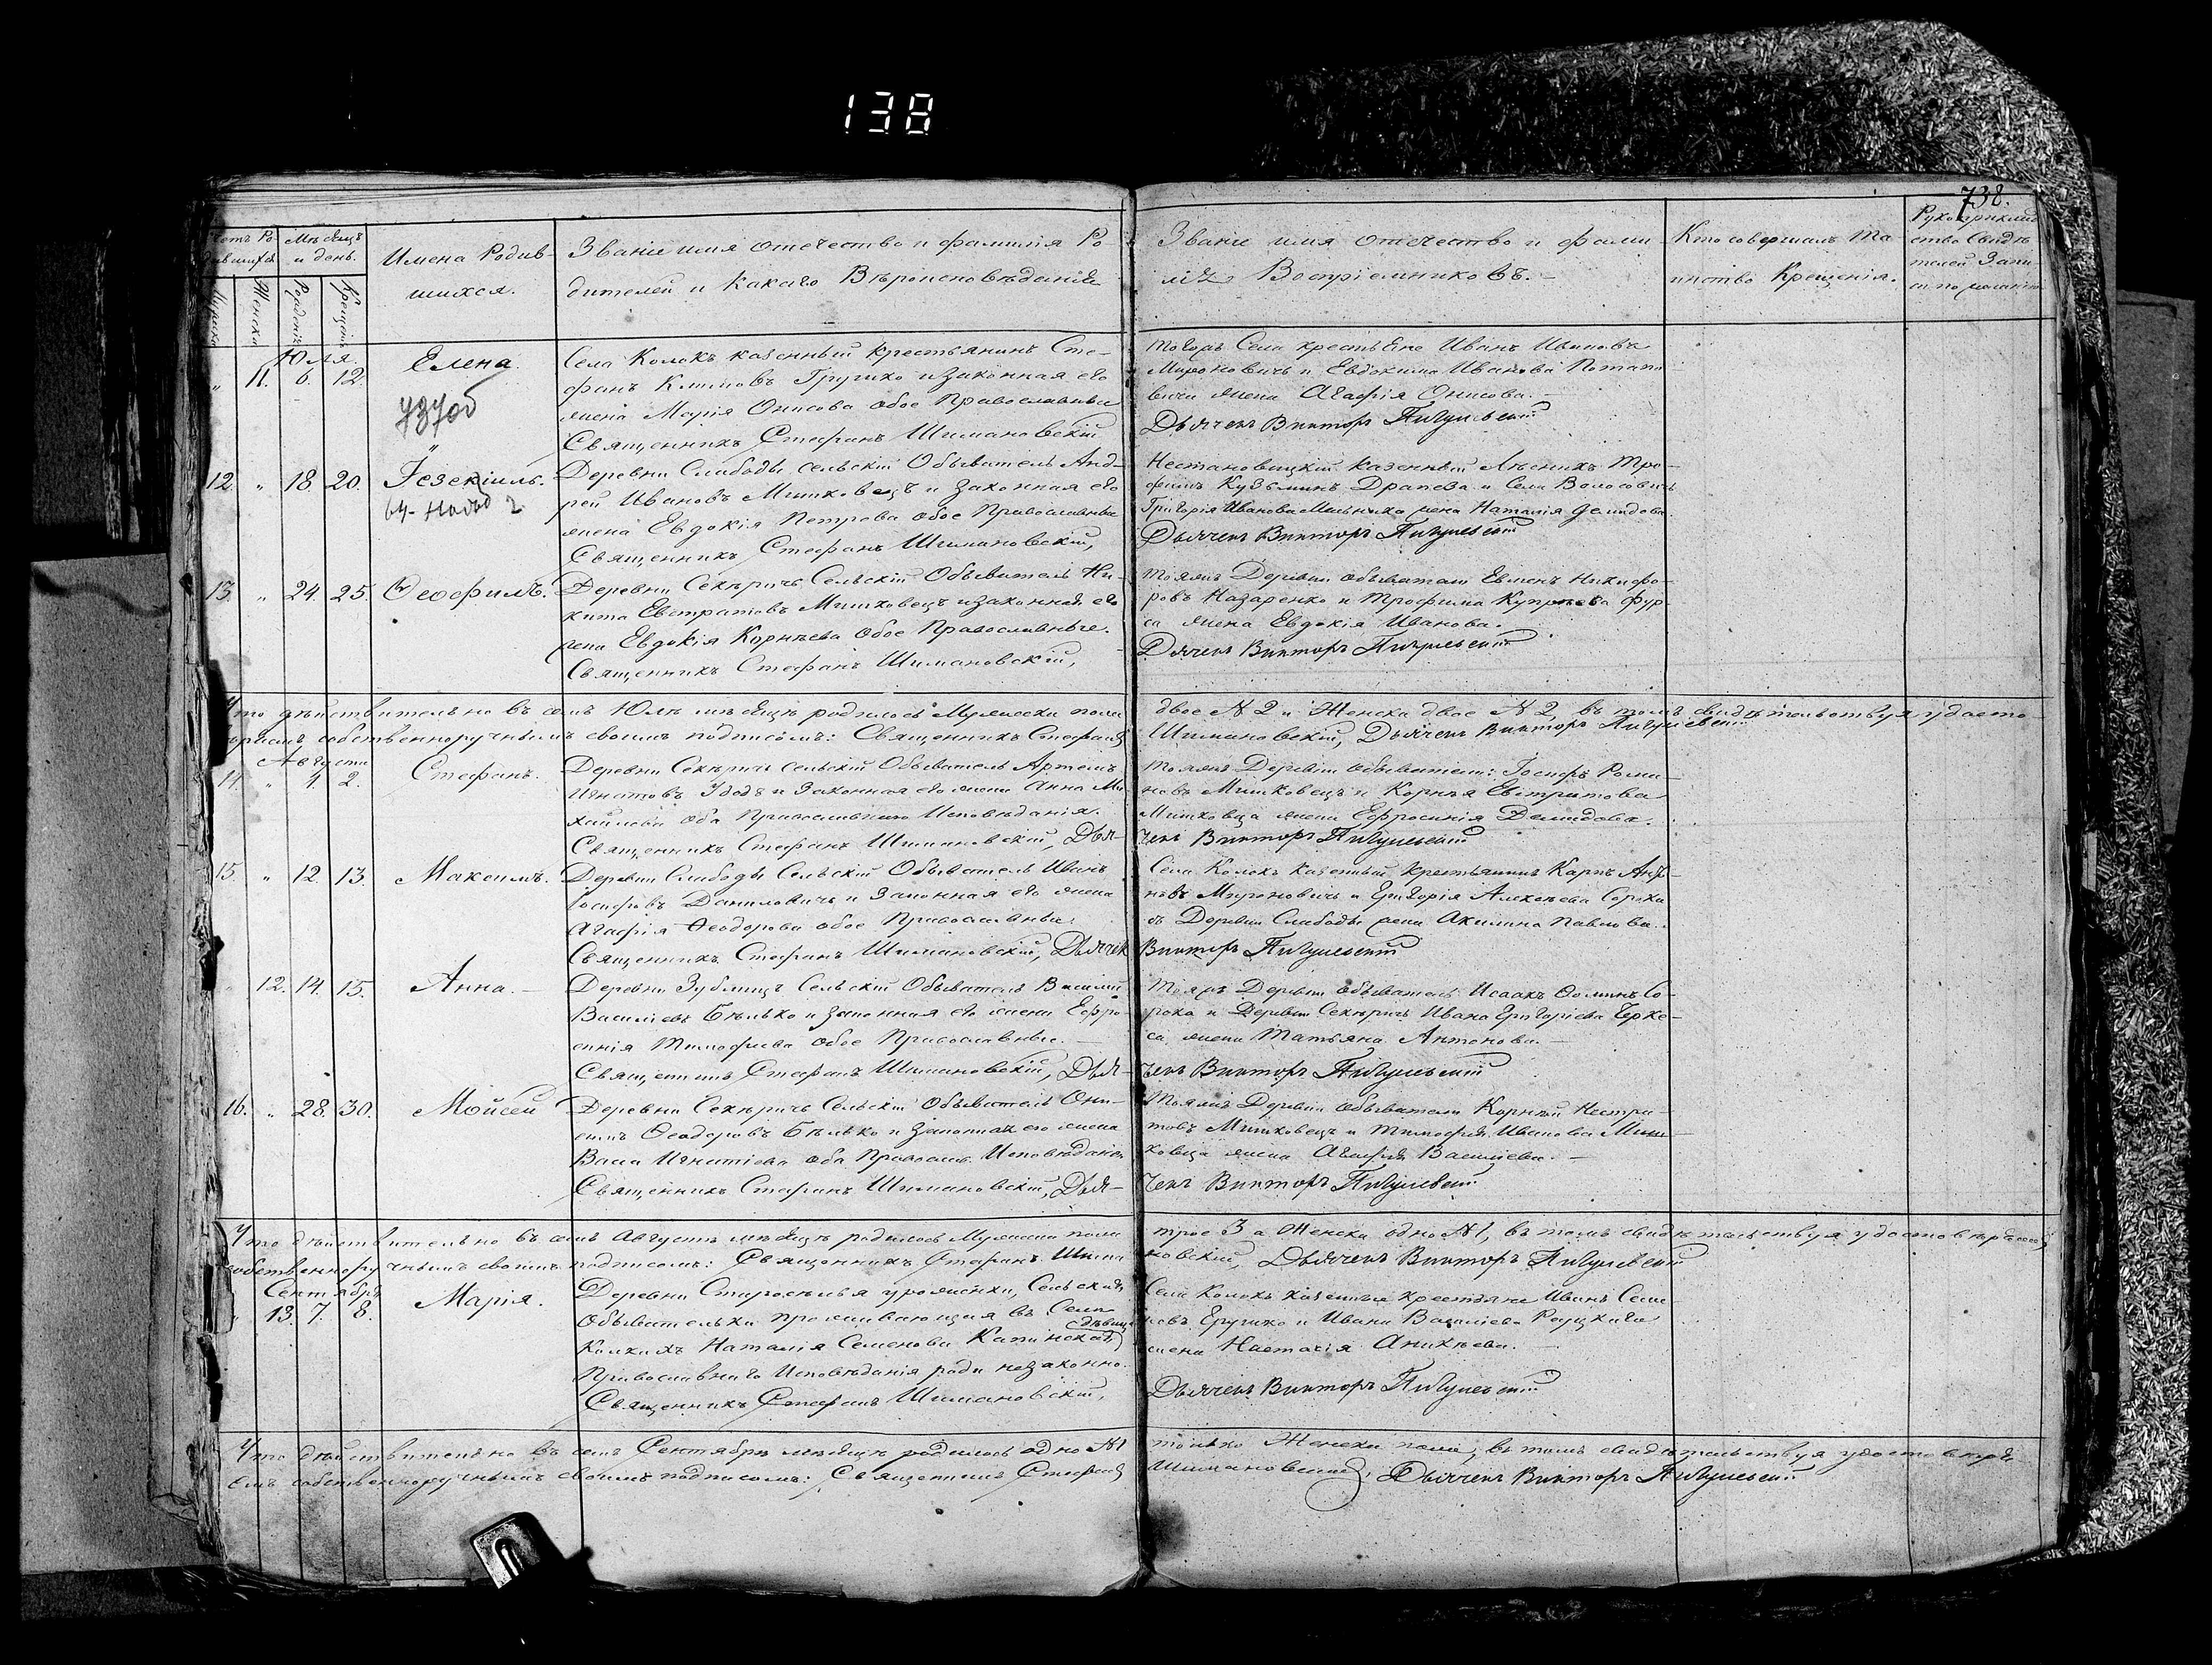 138
738.
Счетъ Ро-
дившихся
Мѣсяцъ
и день.
Имена Родив-
шихся.
Званіе имя отечество и фамилія Ро-
дителей и Какаго Вѣроисповѣданія
Званіе имя отечество и фами-
лія Воспріемниковъ.
Кто совершалъ Та-
инство Крещенія.
Рукоприклад
ство Свидѣ
телей Запи-
си по желанію
Мужска
Женска
Рожденія
Крещенія
Юля.
„ 11. 6. 12.
Елена
737об
Села Колокъ казенный крестьянинъ Сте-
фанъ Климовъ Гружко и законная его
жена Марія Онисова обое Православные
Священникъ Стефанъ Шимановскій
тогожъ Села крестьяне Иванъ Ивановъ
Мироновичъ и Евдокима Иванова Потапо
вича жена Агафія Онисова.
Дьячекъ Викторъ Пигулевскій
12 „ 18. 20.
Іезекіиль.
Деревни Слабоды сельскій Обыватель Анд-
рей Ивановъ Мишковецъ и Законная его
жена Евдокія Петрова обое Православные
Священникъ Стефанъ Шимановскій,
Нестановицкій казенный Лѣсникъ Тро-
фимъ Кузьминъ Драпеза и Села Волосовичъ
Григорія Иванова Мельника жена Наталія Демидова
Дьячекъ Викторъ Пигулевскій
13. „ 24. 25.
Ѳеофилъ.
Деревни Секѣричъ Сельскій Обыватель Ни-
кита Евстратовъ Мишковецъ и законная его
жена Евдокія Корнѣева обое Православные.
Священникъ Стефанъ Шимановскій,
тояжъ Деревни обыватели Евменъ Никифо-
ровъ Назаренко и Трофима Купріева Фур-
са жена Евдокія Иванова.
Дячекъ Викторъ Пигулевскій
Что дѣйствительно въ семъ Юлѣ мѣсяцѣ родилось Мужеска пола
двое N 2 и Женска двое N 2, въ томъ свидѣтельствуя удосто-
вѣряемъ собственноручнымъ своимъ подписомъ: Священникъ Стефанъ
Шимановскій, Дьячекъ Викторъ Пигулевскій
Августа
14. „ 1. 2.
Стефанъ.
Деревни Секѣричъ сельскій Обыватель Артемъ
Игнатовъ Удодъ и Законная его жена Анна Ми
хайлова оба Православнаго Исповѣданія.
Священникъ Стефанъ Шимановскій, Дья-
тояжъ Деревни обыватели: Іосифъ Рома-
новъ Мишковецъ и Корнѣя Евстратова
Мишковца жена Ефросинія Демидова.
чекъ Викторъ Пигулевскій
15 „ 12. 13.
Максимъ.
Деревни Слабоды Сельскій Обыватель Иванъ
Іосифовъ Даниловичъ и Законная его жена
Агафія Ѳеодорова обое Православные.
Священникъ Стефанъ Шимановскій, Дьячекъ
Села Колокъ Казенный крестьянинъ Карпъ
новъ Мироновичъ и Григорія Алексѣева Сороки
съ Деревни Слабоды жена Акилина Павлова.
Викторъ Пигулевскій
12. 14. 15.
Анна.
Деревни Зублищъ Сельскій Обыватель Василій
Василіевъ Бѣлько и Законная его жена Ефро-
синія Тимофеева обое Православные.
Священникъ Стефанъ Шимановскій, Дья-
Тояжъ Деревни обыватель Исаакъ Ѳоминъ Со-
рока и Деревни Секѣричъ Ивана Григоріева Черке-
са жена Татьяна Антонова.
чекъ Викторъ Пигулевскій
16. „ 28. 30.
Мойсей
Деревни Секѣричъ Сельскій Обыватель Они-
симъ Ѳеодоровъ Бѣлько и Законная его жена
Васса Игнатіева оба Правосл. Исповѣданія
Священникъ Стефанъ Шимановскій, Дья-
Тояжъ Деревни обыватели Корнѣй
товъ Мишковецъ и Тимофея Иванова Миш-
ковца жена Агафія Василіева.
чекъ Викторъ Пигулевскій
Что дѣйствительно въ семъ Августѣ мѣсяцѣ родилось Мужеска пола
трое 3 а Женска одно N 1, въ томъ свидѣтельствуя удостовѣряемъ
собственноручнымъ своимъ подписомъ: Священникъ Стефанъ Шима
новскій, Дьячекъ Викторъ Пигулевскій
Сентября
13. 7. 8.
Марія.
Деревни Староселья уроженка, Сельская
Обывателька проживающая въ Селѣ
Колкахъ Наталія Семенова Капинская дѣвица
Православнаго Исповѣданія роди незаконно.
Священникъ Стефанъ Шимановскій,
Села Колокъ казенные крестьяне Иванъ Семе
новъ Гружко и Ивана Василіева Руцкаго
жена Настасія Аникѣева.
Дьячекъ Викторъ Пигулевскій
Что дѣйствительно въ семъ Сентябрѣ мѣсяцѣ родилось одно N 1
только Женска пола, въ томъ свидѣтельствуя удостовѣря
емъ собственноручнымъ своимъ подписомъ: Священникъ Стефанъ
Шимановскій, Дьячекъ Викторъ Пигулевскій